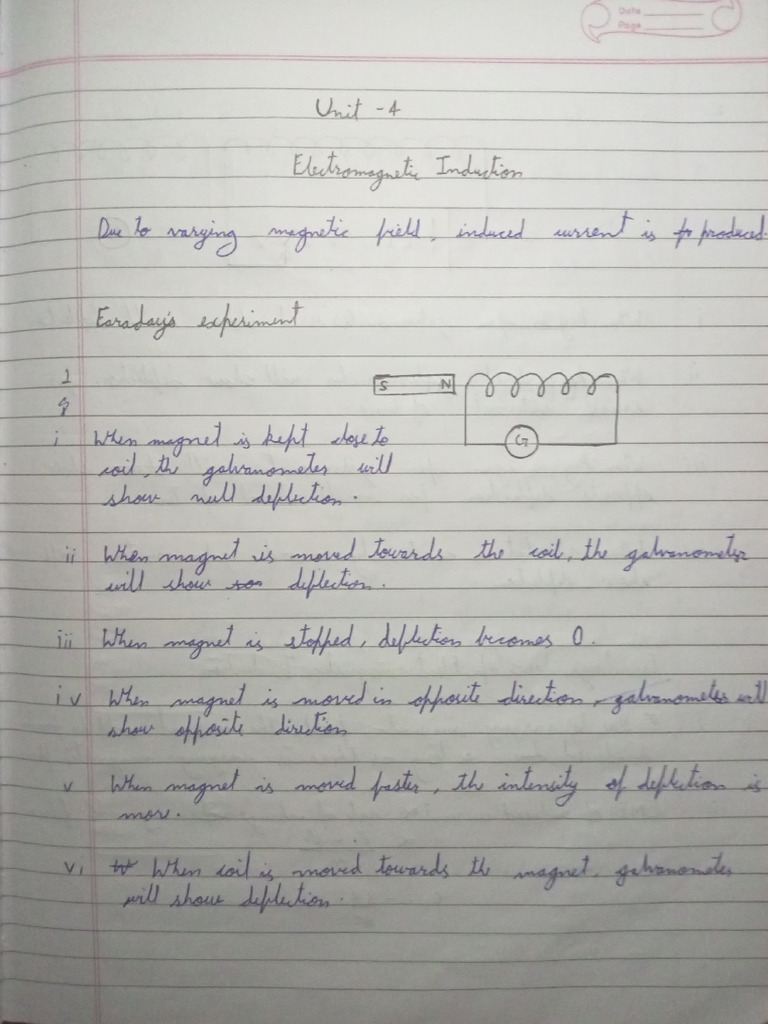 Date
Page
Unit - 4
Electromagnetic Induction
Due to varying magnetic field, induced current is produced.
Faraday's experiment
1
S N
G
i When magnet is kept close to
coil, the galvanometer will
show null deflection.
ii When magnet is moved towards the coil, the galvanometer
will show deflection.
iii When magnet is stopped, deflection becomes 0.
iv When magnet is moved in opposite direction, galvanometer will
show opposite direction
v When magnet is moved faster, the intensity of deflection is
more.
vi When coil is moved towards the magnet, galvanometer
will show deflection.